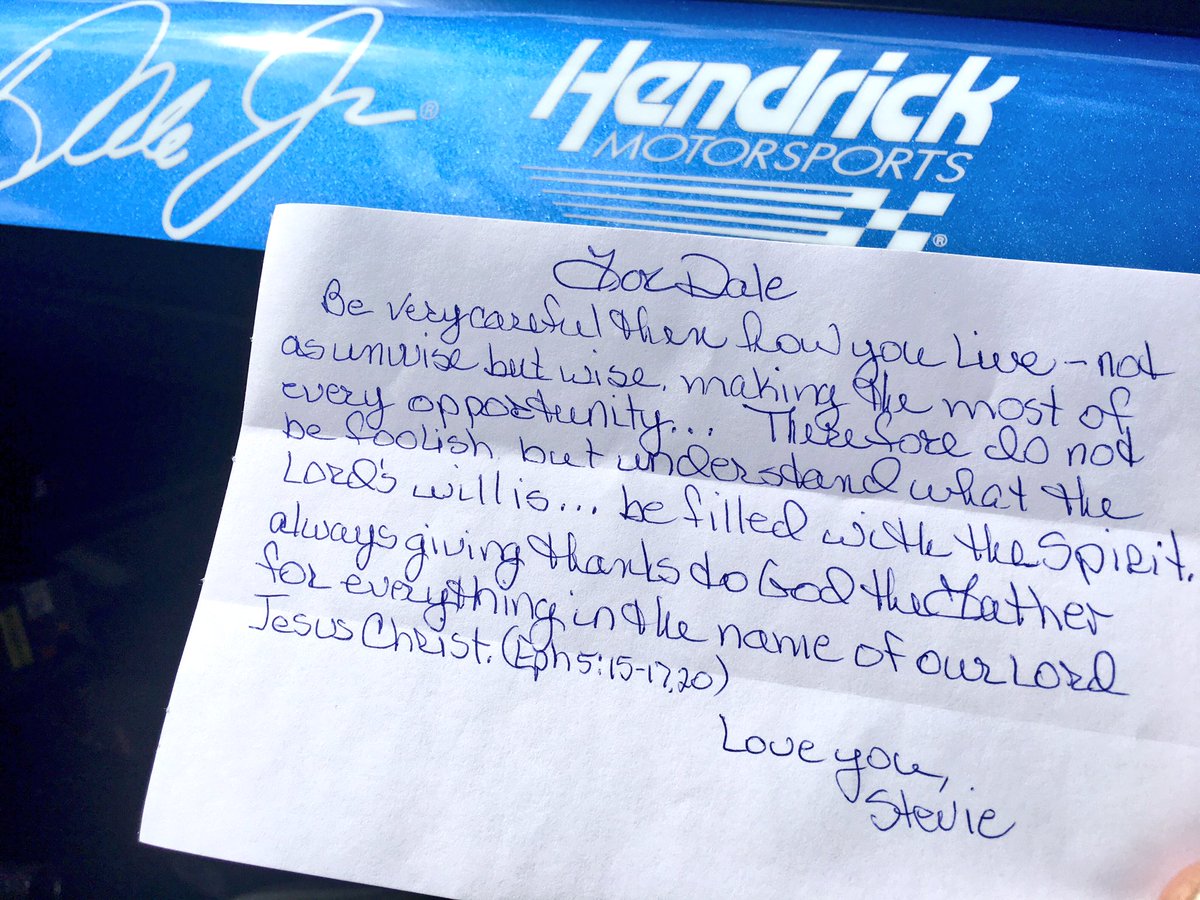 Dale Jr ®
Hendrick
MOTORSPORTS
®
For Dale
Be very careful then how you live – not
as unwise but wise, making the most of
every opportunity... Therefore do not
be foolish, but understand what the
Lord's will is... be filled with the Spirit.
always giving thanks to God the Father
for everything in the name of our Lord
Jesus Christ. (Eph 5:15-17,20)
Love you,
Stevie